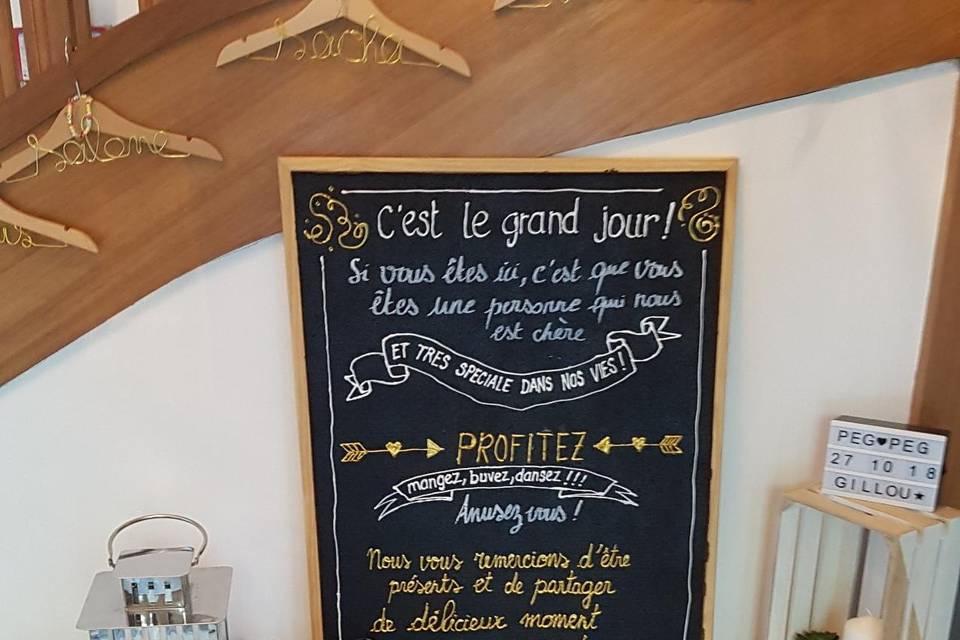 Sacha
Solane
C'est le grand jour!
Si vous êtes ici, c'est que vous
êtes une personne qui nous
est chère
ET TRES SPECIALE DANS NOS VIES!
PROFITEZ
mangez, buvez, dansez !!!
Amusez-vous !
Nous vous remercions d'être
présents et de partager
de délicieux moment
PEG♥PEG
27 10 18
GILLOU★